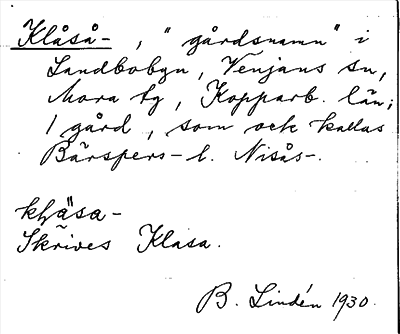 Klåså- , "gårdsnamn" i
Landbobyn, Venjans sn,
Mora tg, Kopparb. län;
1 gård, som ock kallas
Bärspers- l. Nisås-.
Skrives Klasa.
B. Lindén 1930.